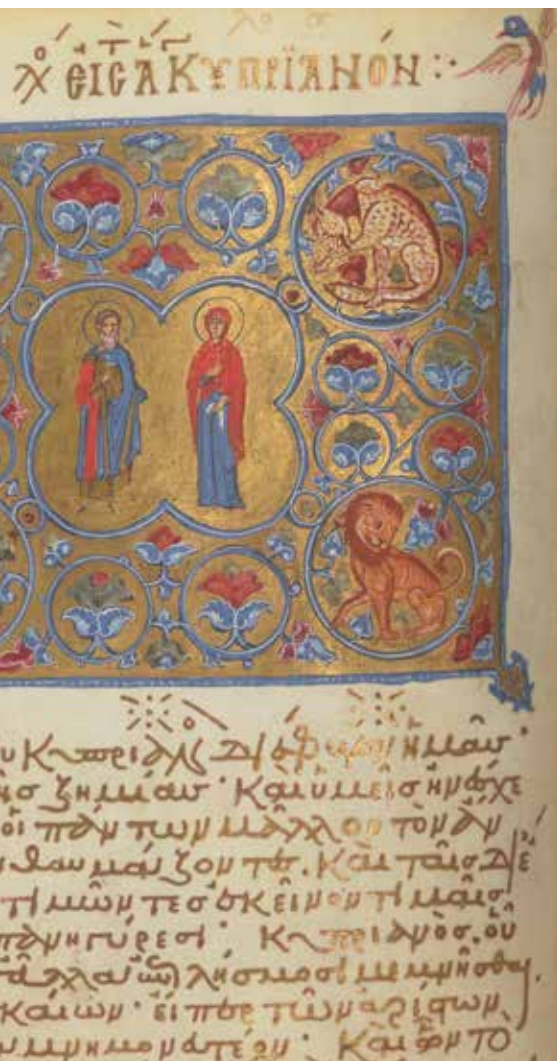 ΕΙC Α ΚΥΠΡΪΑΝΟΝ:·
υ Κυπριανὸς διέφυγεν ἡμᾶς·
ης ζημίας· Καὶ ὑμεῖς ἠνέσχε
οἱ πάντων μᾶλλον τὸν ἄν
θαυμάζοντες. Καὶ ταῖς δι' ἐ
τιμῶντες ἐκεῖνον τιμαῖς
πανηγύρεσι· Κυπριανὸς, οὗ
τἄλλα ἐπιλήσμοσι μεμνῆσθαι,
καιον· εἴπερ τῶν ἀρίστων,
μνημονευτέον· Καὶ ὧν τὸ